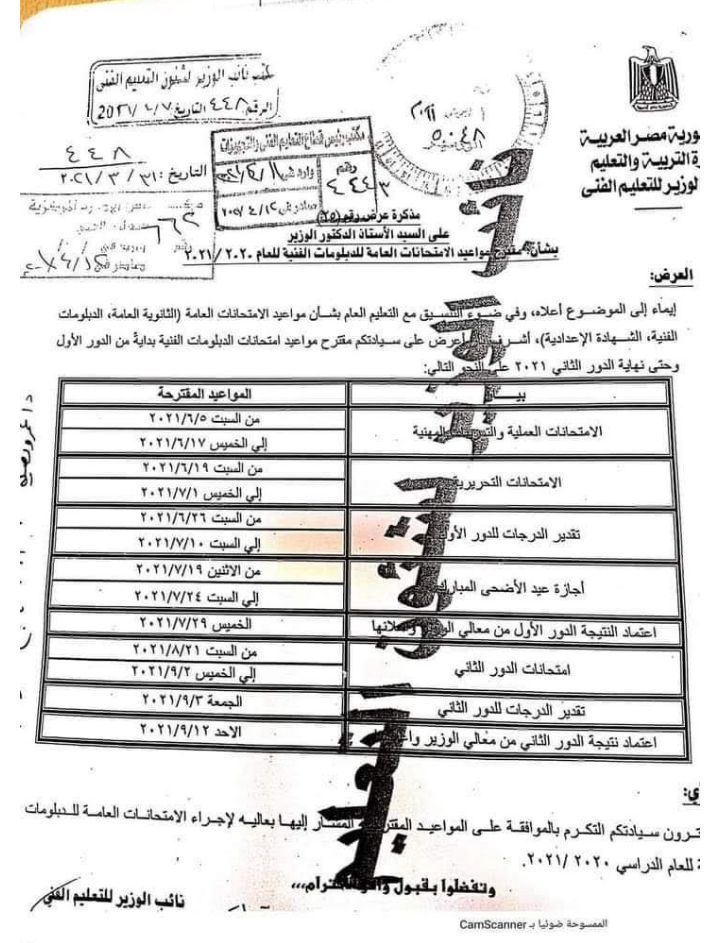 مكتب نائب الوزير لشئون التعليم الفنى
الرقم ٤٤٨ التاريخ
٤٤٨
التاريخ: ٢٠٢١/٣/٣١
مكتب رئيس قطاع التعليم الفنى والتجهيزات
رقم
٤٤٤٣
٥٠٤٨
ورية مصر العربية
ة التربية والتعليم
لوزير للتعليم الفنى
مذكرة عرض رقم (٢٥)
على السيد الأستاذ الدكتور الوزير
بشأن: مقترح مواعيد الامتحانات العامة للدبلومات الفنية للعام ٢٠٢٠ /٢٠٢١
العرض:
إيماء إلى الموضوع أعلاه، وفي ضوء التنسيق مع التعليم العام بشأن مواعيد الامتحانات العامة (الثانوية العامة، الدبلومات
الفنية، الشهادة الإعدادية)، أتشرف بأن أعرض على سيادتكم مقترح مواعيد امتحانات الدبلومات الفنية بدايةً من الدور الأول
وحتى نهاية الدور الثاني ٢٠٢١ على النحو التالي:
بيـــان المواعيد المقترحة
الامتحانات العملية والتدريبات المهنية من السبت ٢٠٢١/٦/٥
إلي الخميس ٢٠٢١/٦/١٧
الامتحانات التحريرية من السبت ٢٠٢١/٦/١٩
إلي الخميس ٢٠٢١/٧/١
تقدير الدرجات للدور الأول من السبت ٢٠٢١/٦/٢٦
إلي السبت ٢٠٢١/٧/١٠
أجازة عيد الأضحى المبارك من الاثنين ٢٠٢١/٧/١٩
إلي السبت ٢٠٢١/٧/٢٤
اعتماد النتيجة الدور الأول من معالي الوزير وإعلانها الخميس ٢٠٢١/٧/٢٩
امتحانات الدور الثاني من السبت ٢٠٢١/٨/٢١
إلي الخميس ٢٠٢١/٩/٢
تقدير الدرجات للدور الثاني الجمعة ٢٠٢١/٩/٣
اعتماد نتيجة الدور الثاني من معالي الوزير الاحد ٢٠٢١/٩/١٢
ي:
ترون سيادتكم التكرم بالموافقة على المواعيد المقترحة المشار إليها بعاليه لإجراء الامتحانات العامة للدبلومات
ة للعام الدراسي ٢٠٢٠ /٢٠٢١.
وتفضلوا بقبول وافر الاحترام،،،
نائب الوزير للتعليم الفني
الممسوحة ضوئيا بـ CamScanner